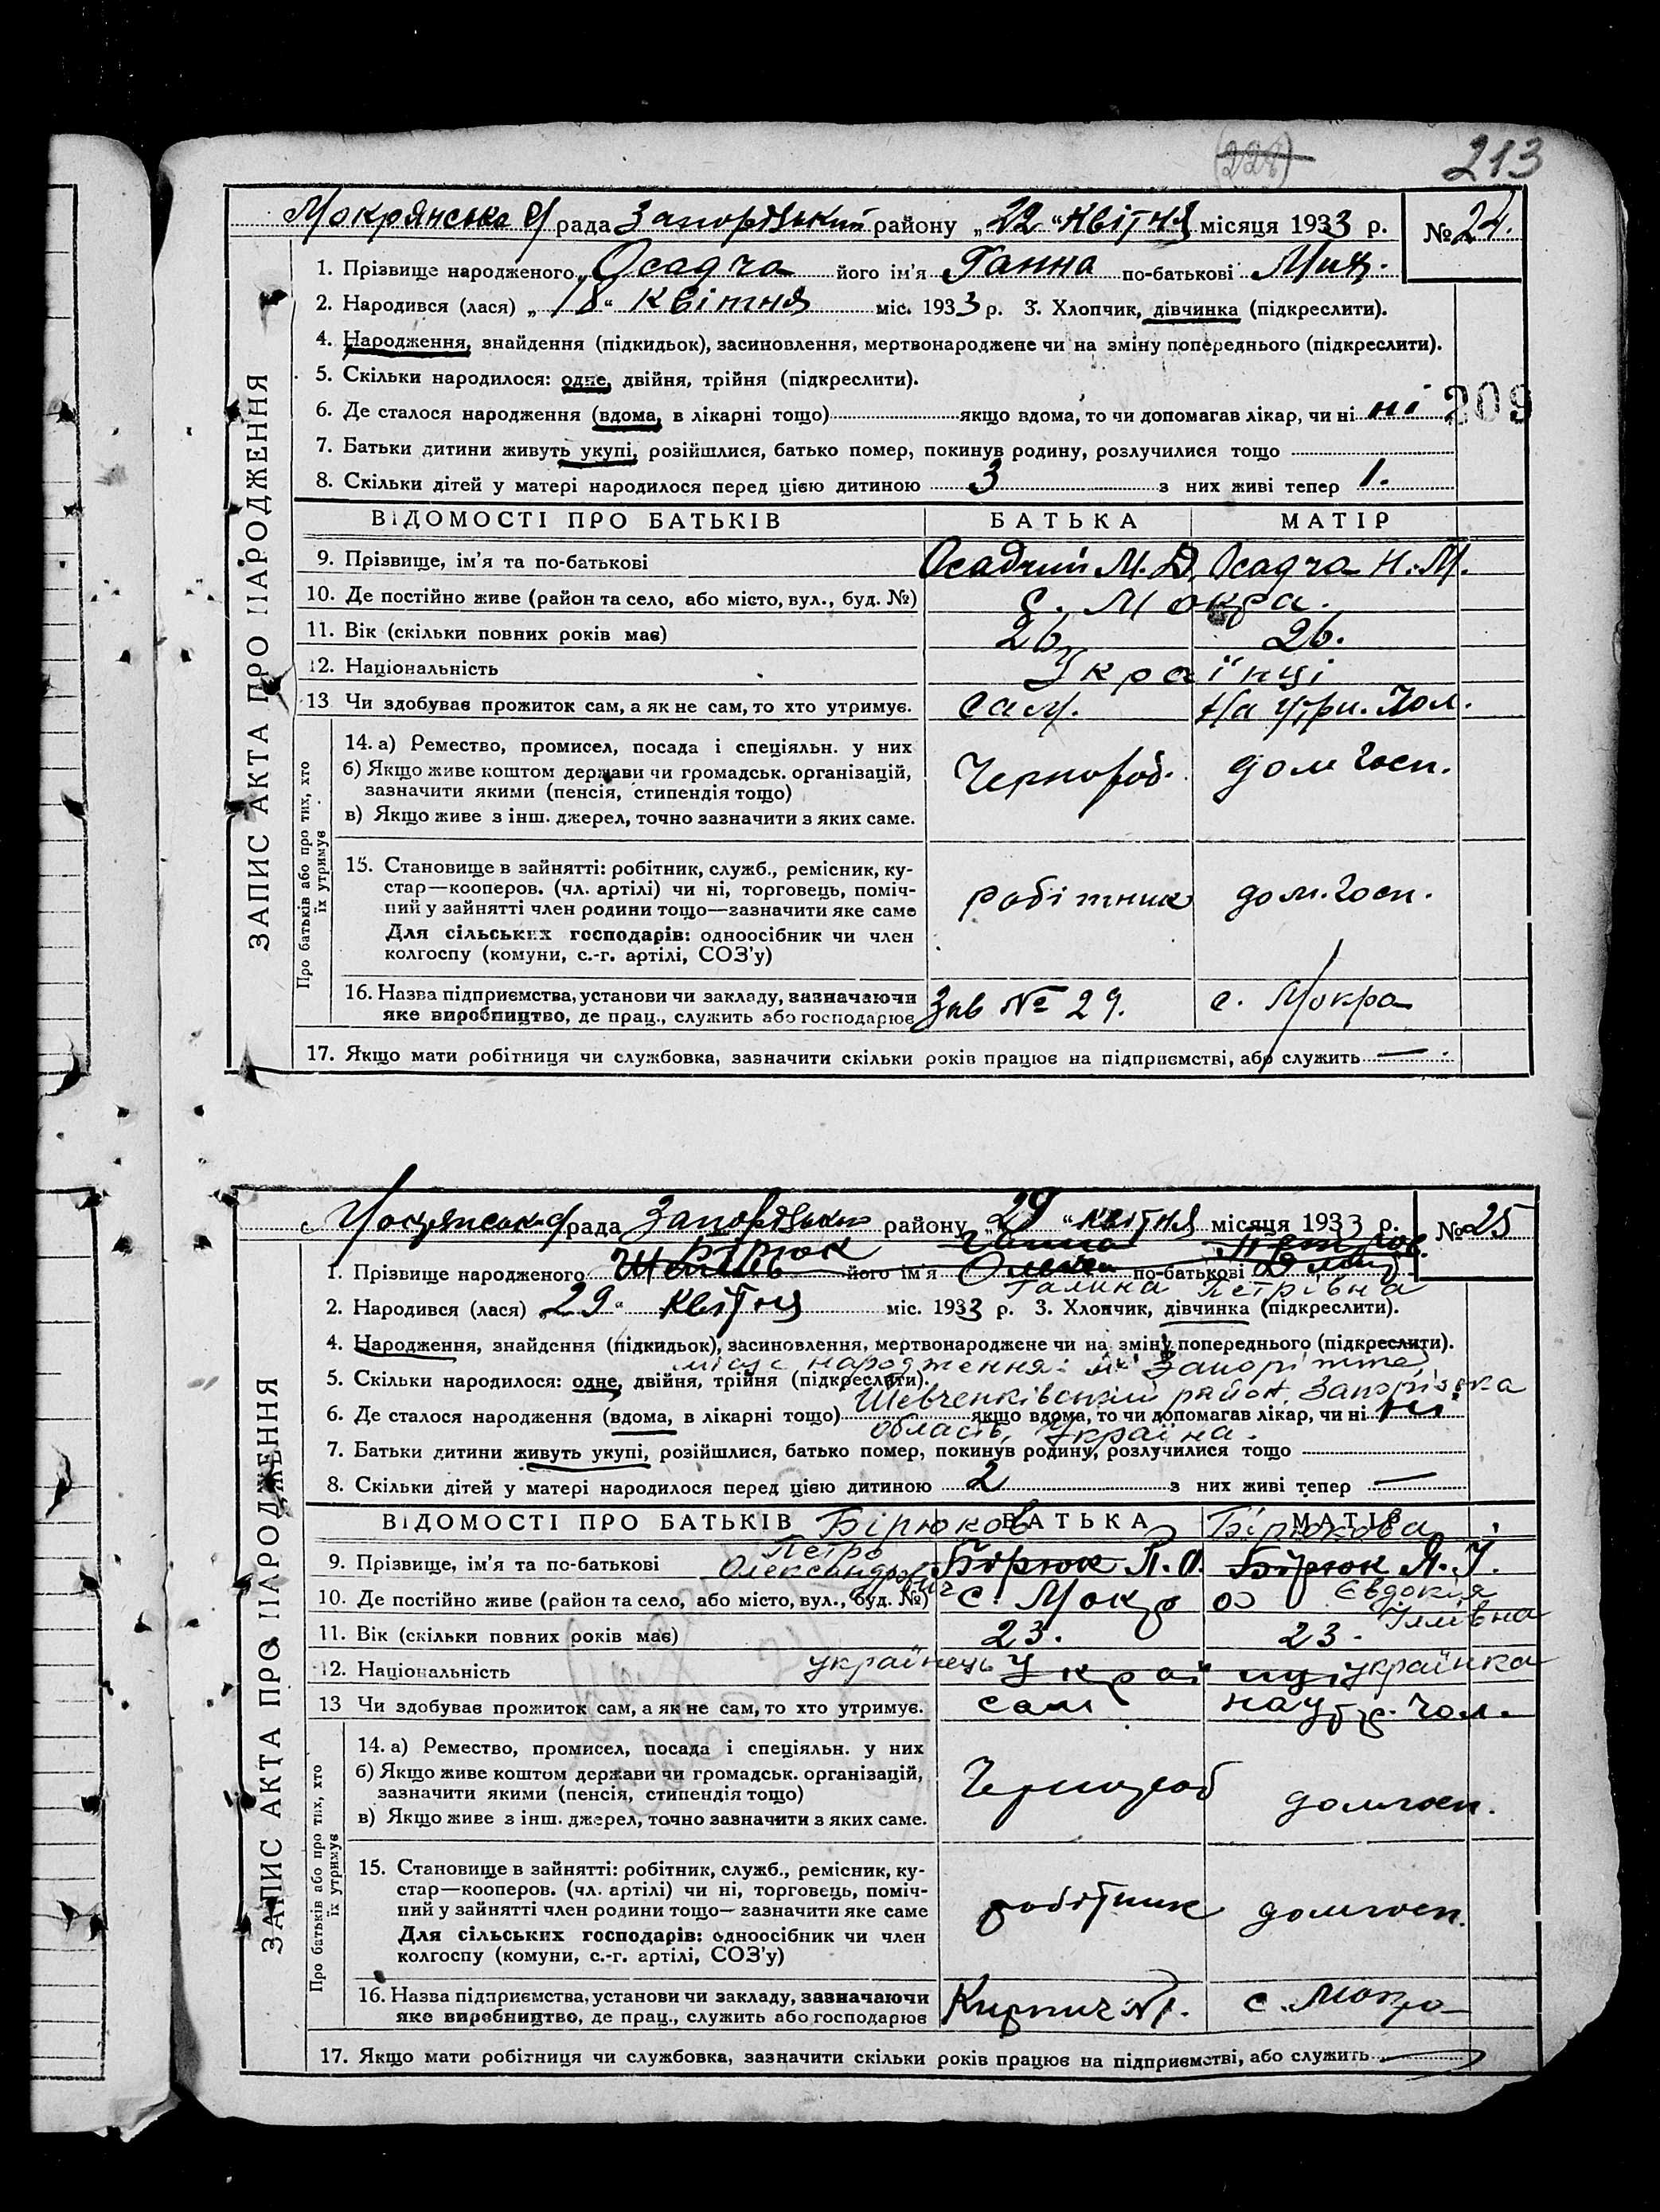 (228)
213
Мокрянська с/рада Запорізький району „22“ Квітня місяця 1933 р. № 24.
1. Прізвище народженого Осадча його ім'я Ганна по-батькові Мих.
2. Народився (лася) „18“ Квітня міс. 1933 р. 3. Хлопчик, дівчинка (підкреслити).
4. Народження, знайдення (підкидьок), засиновлення, мертвонароджене чи на зміну попереднього (підкреслити).
5. Скільки народилося: одне, двійня, трійня (підкреслити).
6. Де сталося народження (вдома, в лікарні тощо) якщо вдома, то чи допомагав лікар, чи ні ні
209
7. Батьки дитини живуть укупі, розійшлися, батько помер, покинув родину, розлучилися тощо
8. Скільки дітей у матері народилося перед цією дитиною 3 з них живі тепер 1.
ВІДОМОСТІ ПРО БАТЬКІВ БАТЬКА МАТІР
9. Прізвище, ім'я та по-батькові Осадчий М. Д. Осадча Н. М.
10. Де постійно живе (район та село, або місто, вул., буд. №) с. Мокра.
11. Вік (скільки повних років має) 26 26.
12. Національність Українці
13 Чи здобуває прожиток сам, а як не сам, то хто утримує. сам. На утри. Чол.
14. а) Ремество, промисел, посада і спеціяльн. у них
б) Якщо живе коштом держави чи громадськ. організацій,
зазначити якими (пенсія, стипендія тощо)
Чернороб. дом госп.
в) Якщо живе з інш. джерел, точно зазначити з яких саме.
15. Становище в зайнятті: робітник, служб., ремісник, ку-
стар—кооперов. (чл. артілі) чи ні, торговець, поміч-
ний у зайнятті член родини тощо—зазначити яке саме
робітник дом. госп.
Для сільських господарів: одноосібник чи член
колгоспу (комуни, с.-г. артілі, СОЗ'у)
16. Назва підприємства, установи чи закладу, зазначаючи
яке виробництво, де прац., служить або господарює
Зав № 29. с. Мокра
17. Якщо мати робітниця чи службовка, зазначити скільки років працює на підприємстві, або служить —.
ЗАПИС АКТА ПРО НАРОДЖЕННЯ
Про батьків або про тих, хто
їх утримує
Мокрянська с/рада Запорізьки району „29“ квітня місяця 1933 р. № 25
Бірюк Ганна Петров.
1. Прізвище народженого його ім'я по-батькові
Галина Петрівна
2. Народився (лася) „29“ Квітня міс. 1933 р. 3. Хлопчик, дівчинка (підкреслити).
4. Народження, знайдення (підкидьок), засиновлення, мертвонароджене чи на зміну попереднього (підкреслити).
місце народження: м. Запоріжжя,
5. Скільки народилося: одне, двійня, трійня (підкреслити).
Шевченківський район, Запорізька
6. Де сталося народження (вдома, в лікарні тощо) якщо вдома, то чи допомагав лікар, чи ні ні
область, Україна.
7. Батьки дитини живуть укупі, розійшлися, батько помер, покинув родину, розлучилися тощо
8. Скільки дітей у матері народилося перед цією дитиною 2 з них живі тепер —
ВІДОМОСТІ ПРО БАТЬКІВ БАТЬКА МАТІР
Бірюков Бірюкова
Петро
Олександрович
9. Прізвище, ім'я та по-батькові Бірюк П. О. Бірюк Я. І.
Євдокія
Іллівна
10. Де постійно живе (район та село, або місто, вул., буд. №) с. Мокра
11. Вік (скільки повних років має) 23. 23.
12. Національність українець Українці українка
13 Чи здобуває прожиток сам, а як не сам, то хто утримує. сам на утр. чол.
14. а) Ремество, промисел, посада і спеціяльн. у них
б) Якщо живе коштом держави чи громадськ. організацій,
зазначити якими (пенсія, стипендія тощо)
Чернороб домгосп.
в) Якщо живе з інш. джерел, точно зазначити з яких саме.
15. Становище в зайнятті: робітник, служб., ремісник, ку-
стар—кооперов. (чл. артілі) чи ні, торговець, поміч-
ний у зайнятті член родини тощо—зазначити яке саме
робітник домгосп.
Для сільських господарів: одноосібник чи член
колгоспу (комуни, с.-г. артілі, СОЗ'у)
16. Назва підприємства, установи чи закладу, зазначаючи
яке виробництво, де прац., служить або господарює
Кирпич №1. с. Мокра
17. Якщо мати робітниця чи службовка, зазначити скільки років працює на підприємстві, або служить —
ЗАПИС АКТА ПРО НАРОДЖЕННЯ
Про батьків або про тих, хто
їх утримує